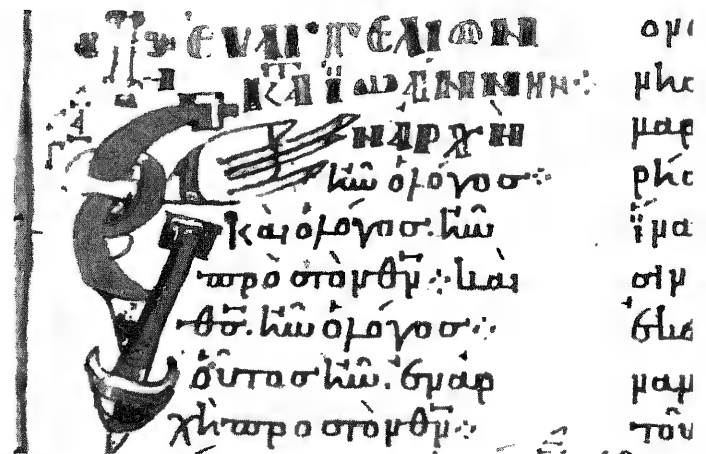 ΕΥΑΓΓΕΛΙΟΝ
ΚΤΑ ΪΩΑΝΝΗΝ ⁘
ΕΝ ἈΡΧΗ
ἦν ὁ λόγοσ ⁘
καὶ ὁ λόγοσ. ἦν
πρὸσ τὸν θν̅ ⁘ καὶ
θσ̅. ἦν ὁ λόγοσ ⁘
οὗτοσ ἦν. ἐν ἀρ
χῆ προσ τὸν θν̅ ⁘
μαρ
ϊνα
σιν
τοῦ